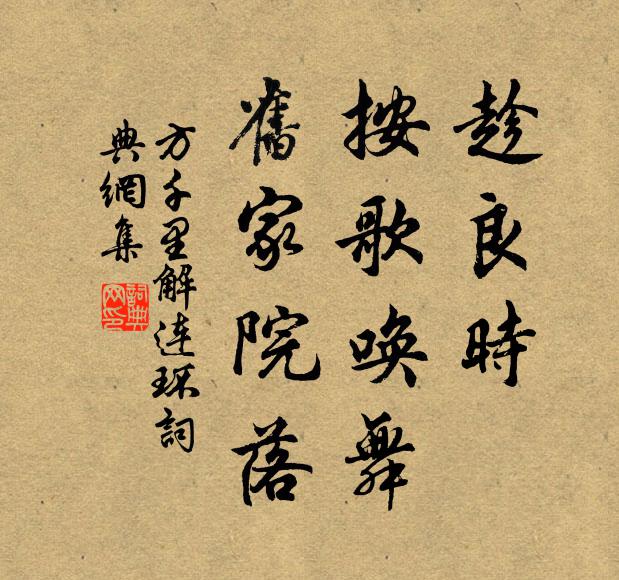 趁良時
按歌喚舞
舊家院落
方千里解連環詞
典網集
詞典網印